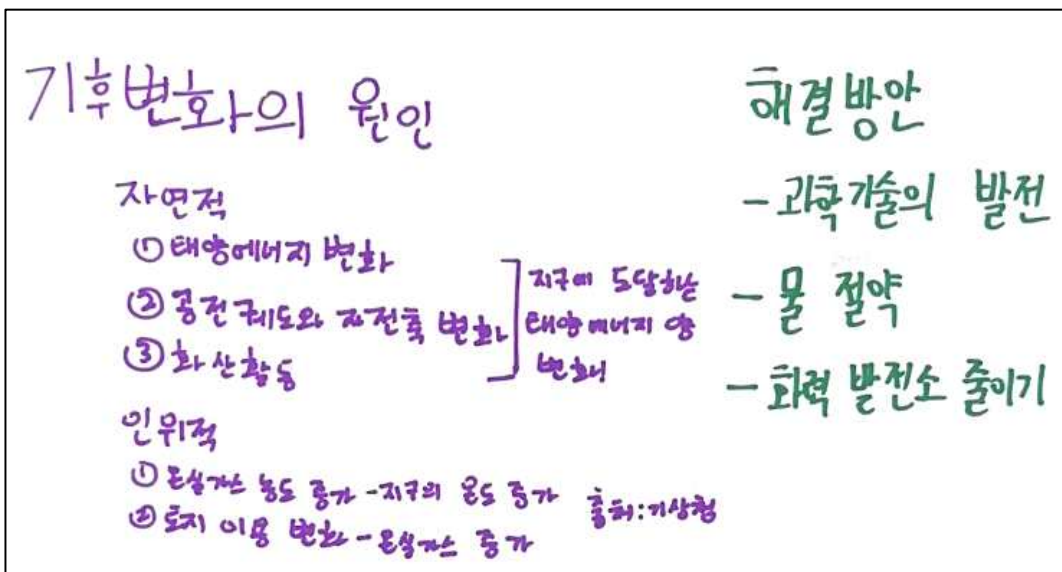 기후변화의 원인
자연적
① 태양에너지 변화
② 공전궤도와 자전축 변화
③ 화산활동
지구에 도달하는
태양에너지 양
변화
인위적
① 온실가스 농도 증가 - 지구의 온도 증가
② 토지 이용 변화 - 온실가스 증가
출처:기상청
해결방안
- 과학기술의 발전
- 물 절약
- 화력 발전소 줄이기